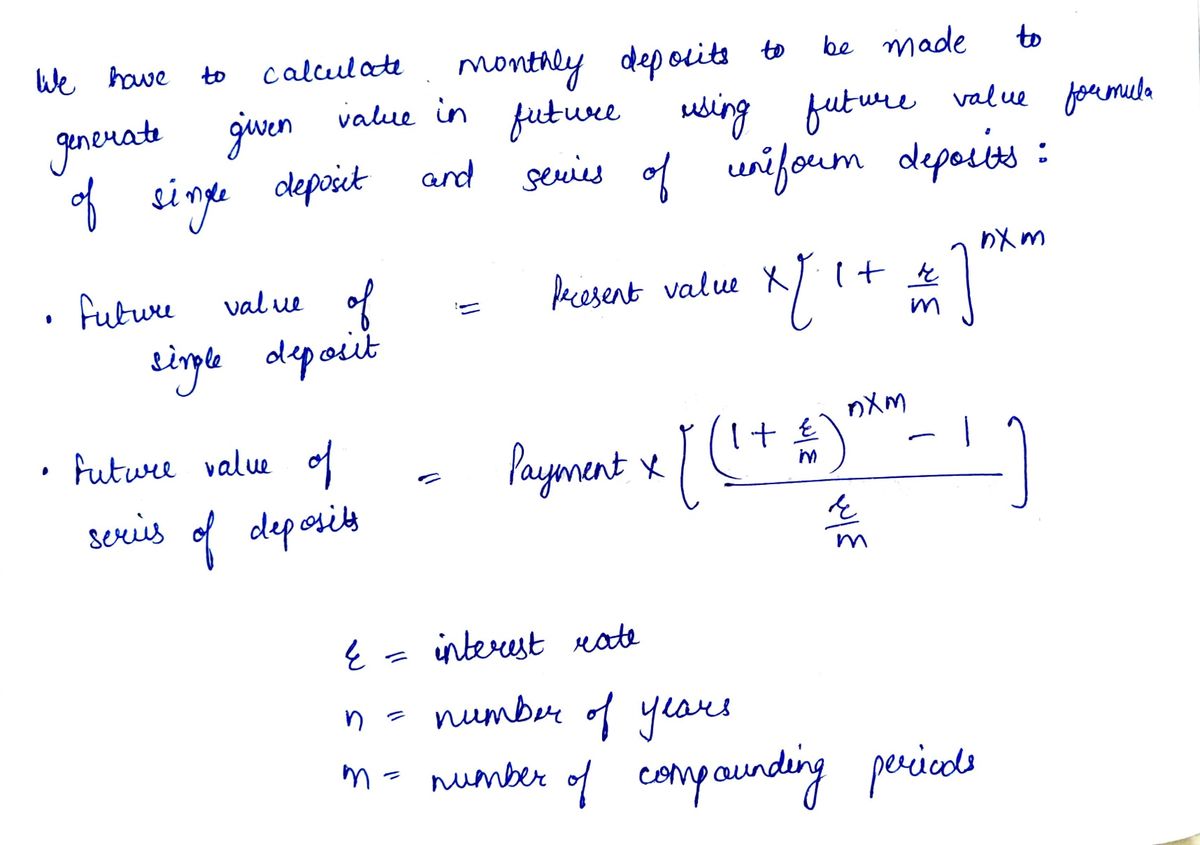 We have to calculate monthly deposits to be made to
generate given value in future using future value formula
of single deposit and series of uniform deposits :
• future value of = Present value × [ 1 + r/m ]^n×m
single deposit
• future value of = Payment × [ ( (1 + r/m)^n×m - 1 ) / (r/m) ]
series of deposits
r = interest rate
n = number of years
m = number of compounding periods